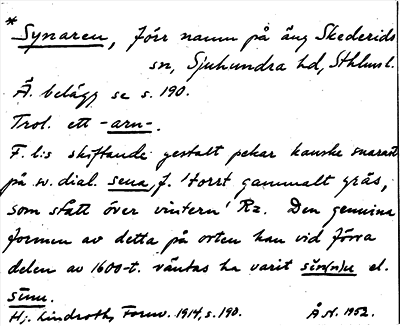 *
Synaren, förr namn på äng Skederids
sn, Sjuhundra hd, Sthlmsl.
Ä. belägg se s. 190.
Trol. ett -arn-.
F. l:s skiftande gestalt pekar kanske snarast
på sv. dial. sena, f. 'torrt gammalt gräs,
som stått över vintern' Rz. Den genuina
formen av detta på orten kan vid förra
delen av 1600-t. väntas ha varit sin(n)u el.
sinu.
Hj. Lindroth, Fornv. 1914, s. 190. Å st. 1952.